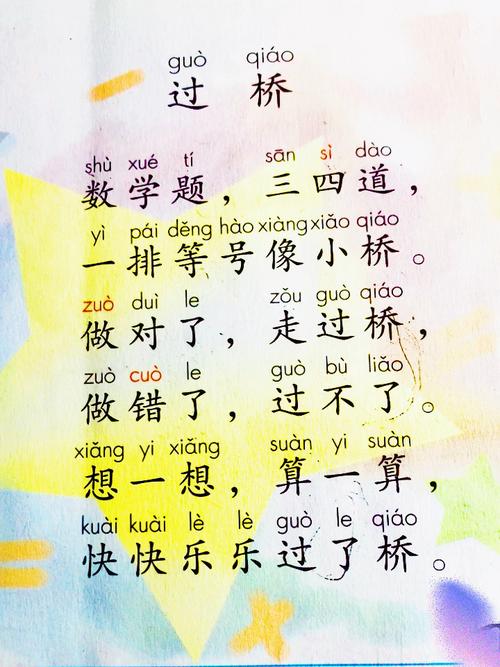 guò qiáo
过 桥
shù xué tí sān sì dào
数学题，三四道，
yì pái děng hào xiàng xiǎo qiáo
一排等号像小桥。
zuò duì le zǒu guò qiáo
做对了，走过桥，
zuò cuò le guò bù liǎo
做错了，过不了。
xiǎng yi xiǎng suàn yi suàn
想一想，算一算，
kuài kuài lè lè guò le qiáo
快快乐乐过了桥。